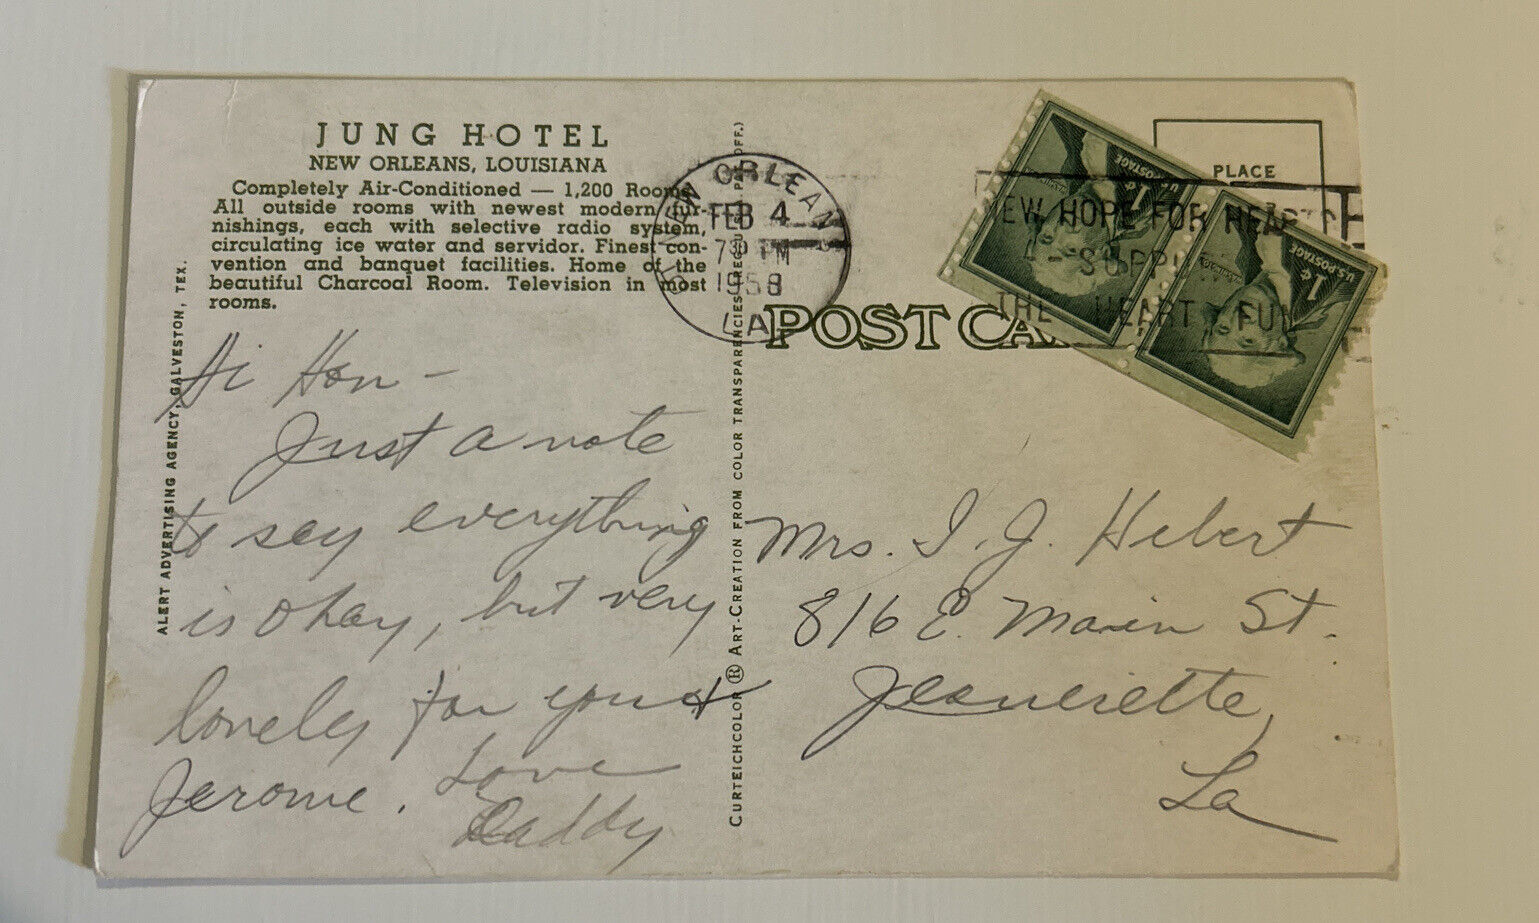 JUNG HOTEL
NEW ORLEANS, LOUISIANA
Completely Air-Conditioned — 1,200 Rooms.
All outside rooms with newest modern fur-
nishings, each with selective radio system,
circulating ice water and servidor. Finest con-
vention and banquet facilities. Home of the
beautiful Charcoal Room. Television in most
rooms.
ALERT ADVERTISING AGENCY, GALVESTON, TEX.
Hi Hon -
Just a note
to say everything
is okay, but very
lonely for you &
Jerome. Love
Daddy
CURTEICHCOLOR ® ART-CREATION FROM COLOR TRANSPARENCIES (REG. U.S.A. PAT. OFF.)
NEW ORLEANS
FEB 4
730 PM
1958
LA
POST CA
PLACE
EW HOPE FOR HEARTS
SUPP
THE HEART FUN
1¢ U.S. POSTAGE
1¢ U.S. POSTAGE
Mrs. I. J. Hebert
816 E. Main St.
Jeanerette,
La